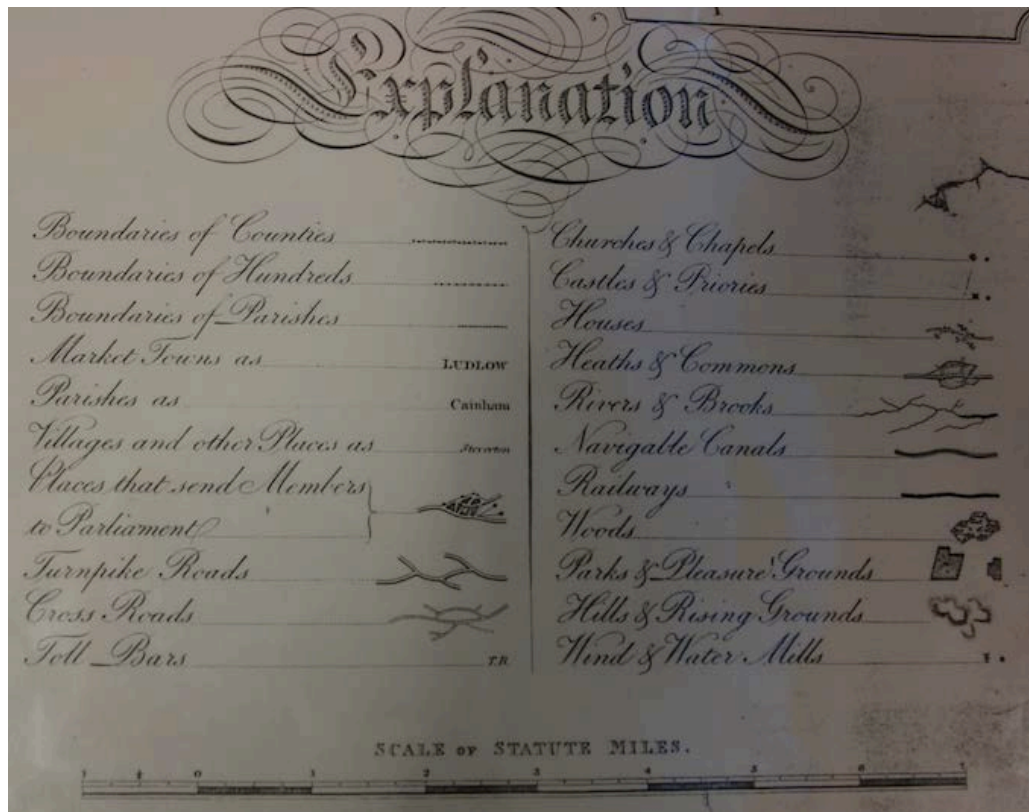 Explanation
Boundaries of Counties
Boundaries of Hundreds
Boundaries of Parishes
Market Towns as LUDLOW
Parishes as Cainham
Villages and other Places as Steventon
Places that send Members
to Parliament
Turnpike Roads
Cross Roads
Toll Bars T.B
Churches & Chapels
Castles & Priories
Houses
Heaths & Commons
Rivers & Brooks
Navigable Canals
Railways
Woods
Parks & Pleasure Grounds
Hills & Rising Grounds
Wind & Water Mills
SCALE OF STATUTE MILES.
1 ½ 0 1 2 3 4 5 6 7